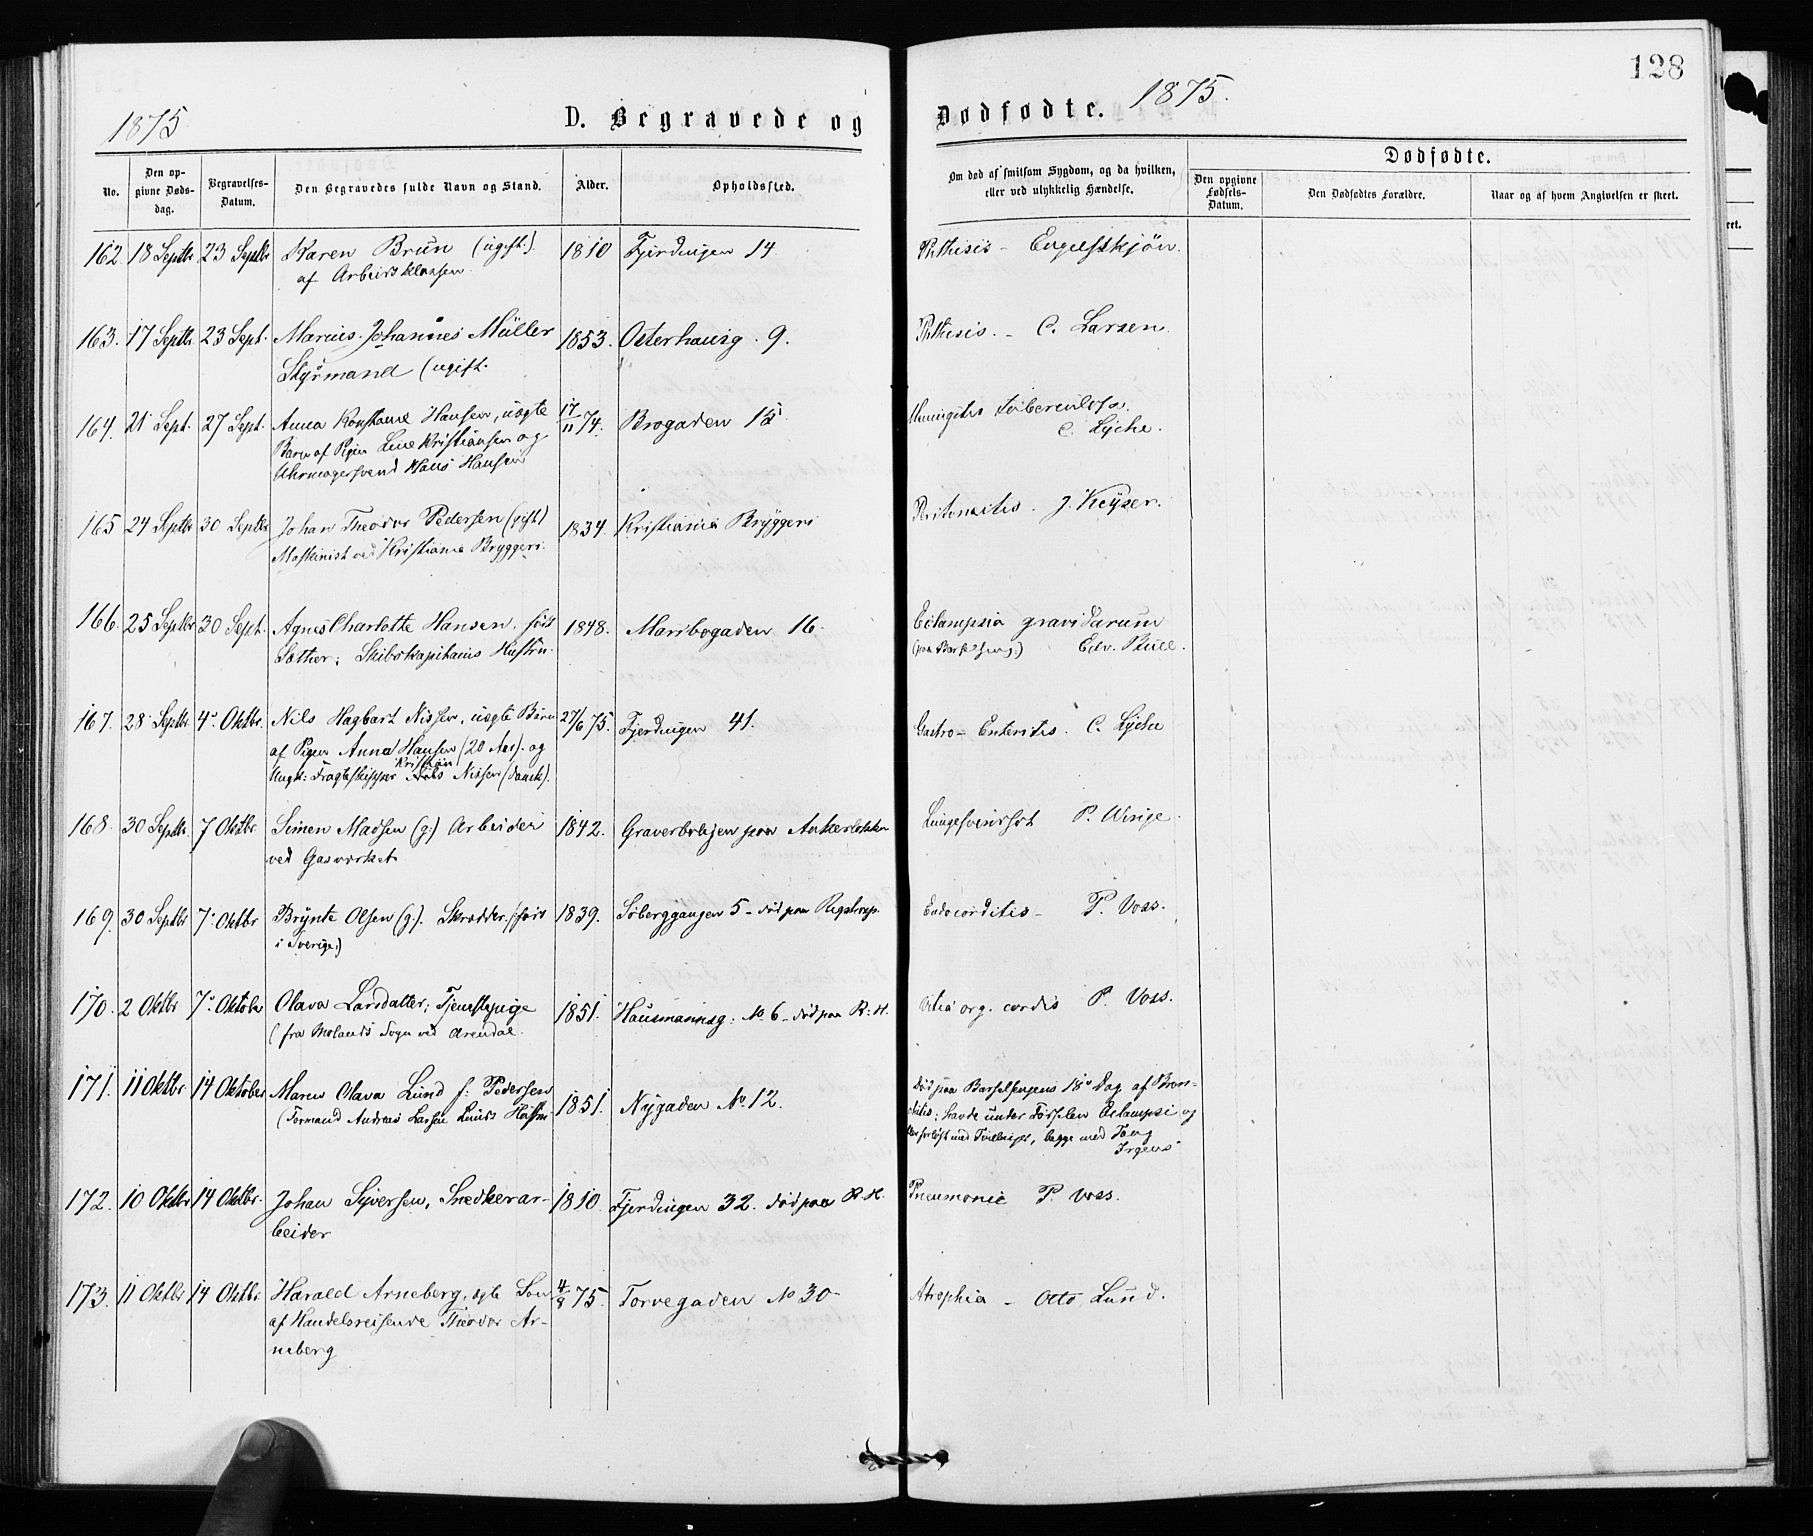 128
1875
D. Begravede og
Dødfødte.
1875.
No.
Den opgivne Dødsdag.
Begravelses-Datum.
Den Begravedes fulde Navn og Stand.
Alder.
Opholdssted.
Om død af smitsom Sygdom, og da hvilken, eller ved ulykkelig Hændelse.
Dødfødte.
Den opgivne Fødsels-Datum.
Den Dødfødtes Forældre.
Naar og af hvem Angivelsen er skeet.
162. 18 Septbr 23 Septbr Karen Brun (ugift.) 1810 Fjerdingen 14 Phthisis - Engelskjøn.
af Arbeidsklassen
163. 17 Septbr. 23 Sept. Marius Johannes Müller 1853. Osterhausg. 9. Phthisis. - C. Larsen.
Styrmand (ugift.
164. 21 Sept. 27 Sept. Anna Konstanse Hansen, uægte 17/11 74. Brogaden 15 Meningitis tuberculosa.
Barn af Pigen Line Kristiansen og C. Lyche.
Uhrmagersvend Hans Hansen
165 24 Septbr 30 Septbr Johan Theodor Pedersen (gift) 1834. Kristiania Bryggeri Peritonitis. J. Keyser.
Maskinist ved Kristiania Bryggeri.
166. 25 Septbr 30 Sept. Agnes Charlotte Hansen, født 1848. Maribogaden 16. Eclampsia gravidarum
Sæther; Skibskapitains Hustru. (paa Barselseng.) Edv. Bull.
167. 28 Septbr. 4. Oktbr. Nils Hagbart Nissen, uægte Barn 27/6 75. Fjerdingen 41. Gastro-Enteritis. C. Lyche
af Pigen Anna Hansen (20 Aar). og
Kristian
Ungk: Fragteskipper Nils Nissen (dansk).
168. 30 Septbr. 7 Oktbr. Simen Madsen (g.) Arbeider 1842. Graverboligen paa Ankerløkken Lungesvindsot P. Winge.
ved Gasværket
169. 30 Septbr 7. Oktbr Brynte Olsen (g). Skrædder. (født 1839. Søberggangen 5 - død paa Rigshosp. Endocarditis - P. Voss.
i Sverige.)
170. 2 Oktbr 7. Oktober Olava Larsdatter; Tjenestepige 1851. Hausmannsg: No 6 - død paa R: H. Vitia org. cordis P. Voss.
(fra Molands Sogn ved Arendal.
171. 11 Oktbr. 14 Oktober Maren Olava Lund f: Pedersen 1851. Nygaden No. 12. Død paa Barselsengens 18de Dag af Bron-
(Formand Andreas Larsen Lunds Hustru chitis; havde under Fødselen Eclampsi og
blev forløst med Tvillinger, begge med Tang
Irgens
172. 10 Oktbr 14 Oktbr. Johan Syversen, Snedkerar- 1810. Fjerdingen 32. død paa R.H. Pneumonie P. Voss.
beider
173. 11 Oktbr 14 Oktbr. Harald Arneberg, ægte Søn 4/9 75. Torvegaden No 30 - Atrophia - Otto Lund.
af Handelsreisende Theodor Ar-
neberg